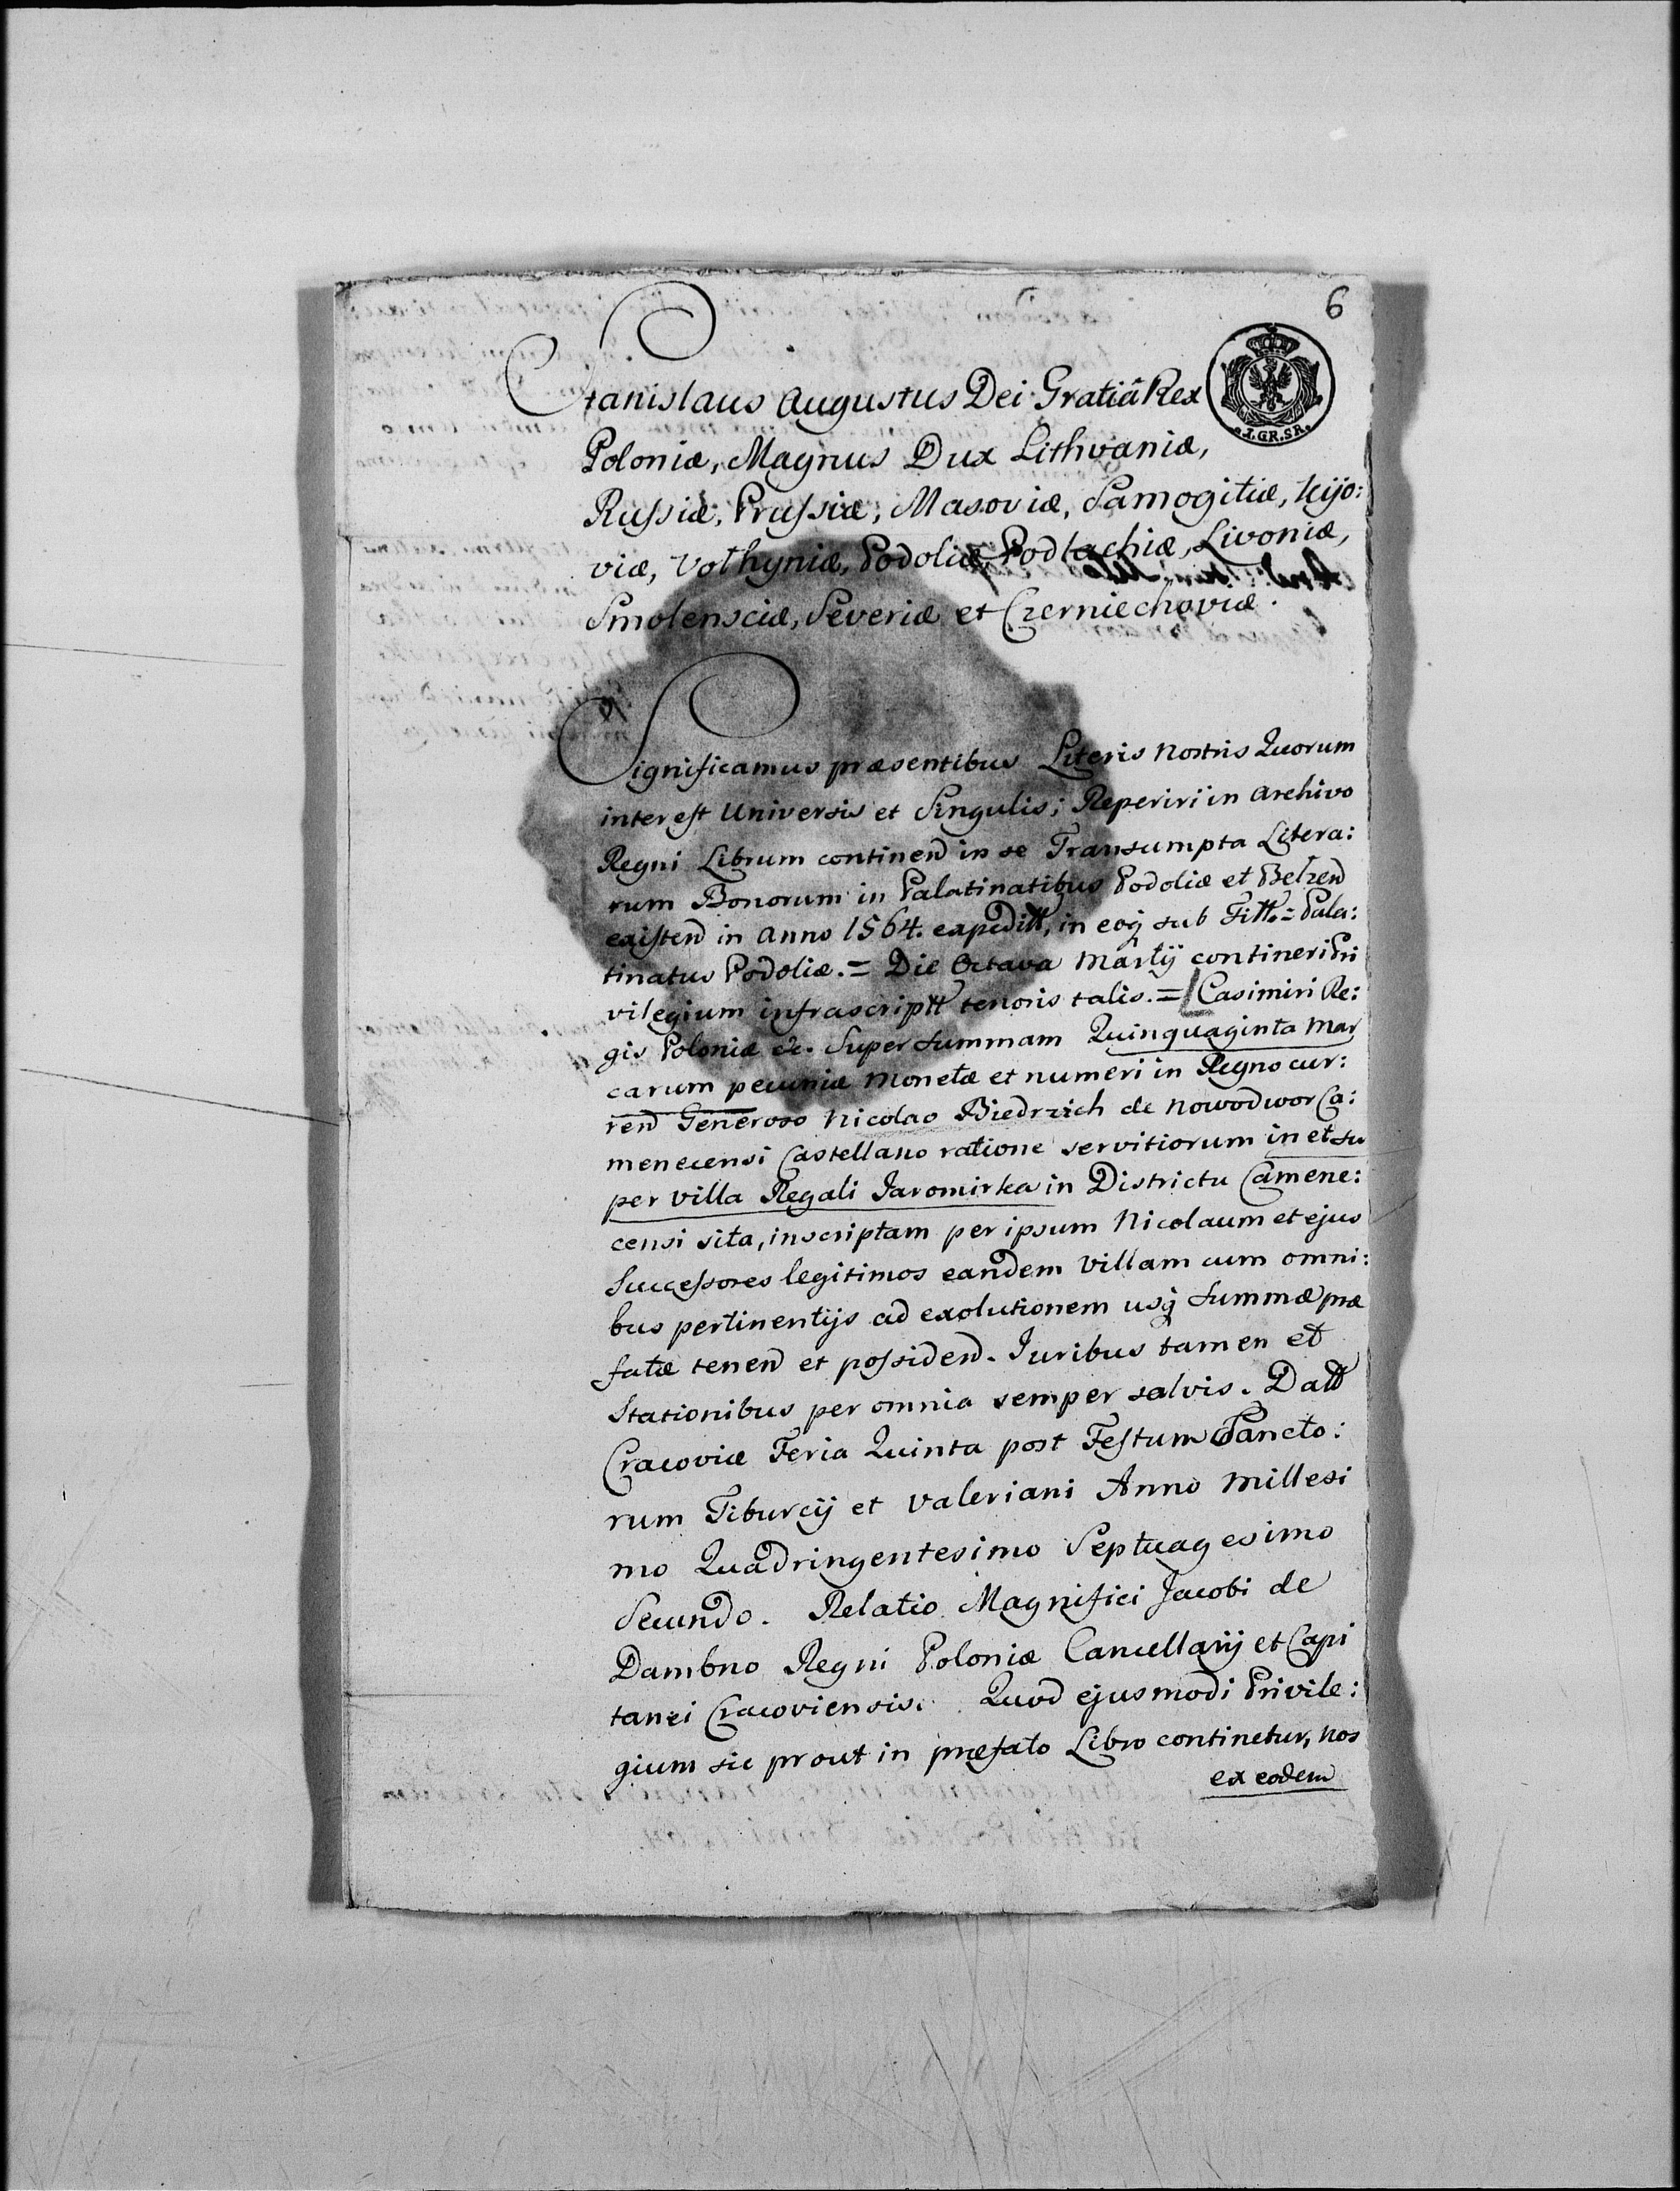 6
Stanislaus Augustus Dei Gratiâ Rex
1.GR.SR.
Poloniæ, Magnus Dux Lithvaniæ,
Russiæ, Prussiæ, Masoviæ, Samogitiæ, Kijo:
viæ, Volhyniæ, Podoliæ, Podlachiæ, Livoniæ,
Smolensciæ, Severiæ et Czerniechoviæ.
Significamus præsentibus Literis Nostris Quorum
interest Universis et Singulis; Reperiri in Archivo
Regni Librum continen in se Transumpta Litera:
rum Bonorum in Palatinatibus Podoliæ et Belzen
existen in Anno 1564. expeditt, in eoq sub Titt = Pala:
tinatus Podoliæ. = Die Octava Martij contineri Pri
vilegium infrascriptt tenoris talis. = Casimiri Re:
gis Poloniæ &c. Super Summam Quinquaginta Mar
carum pecuniæ Monetæ et numeri in Regno cur:
ren Generoso Nicolao Biedrzich de Nowodwor Ca:
menecensi Castellano ratione servitiorum in et su
per Villa Regali Jaromirka in Districtu Camene:
censi sita, inscriptam per ipsum Nicolaum et ejus
Successores legitimos eandem Villam cum omni:
bus pertinentijs ad exolutionem usq Summæ præ
fatæ tenen et possiden. Juribus tamen et
Stationibus per omnia semper salvis. Datt
Cracoviæ Feria Quinta post Festum Sancto:
rum Tiburcij et Valeriani Anno Millesi
mo Quadringentesimo Septuagesimo
Secundo. Relatio Magnifici Jacobi de
Dambno Regni Poloniæ Cancellarij et Capi
tanei Cracoviensis. Quod ejusmodi Privile:
gium sic prout in præfato Libro continetur, Nos
ex eodem